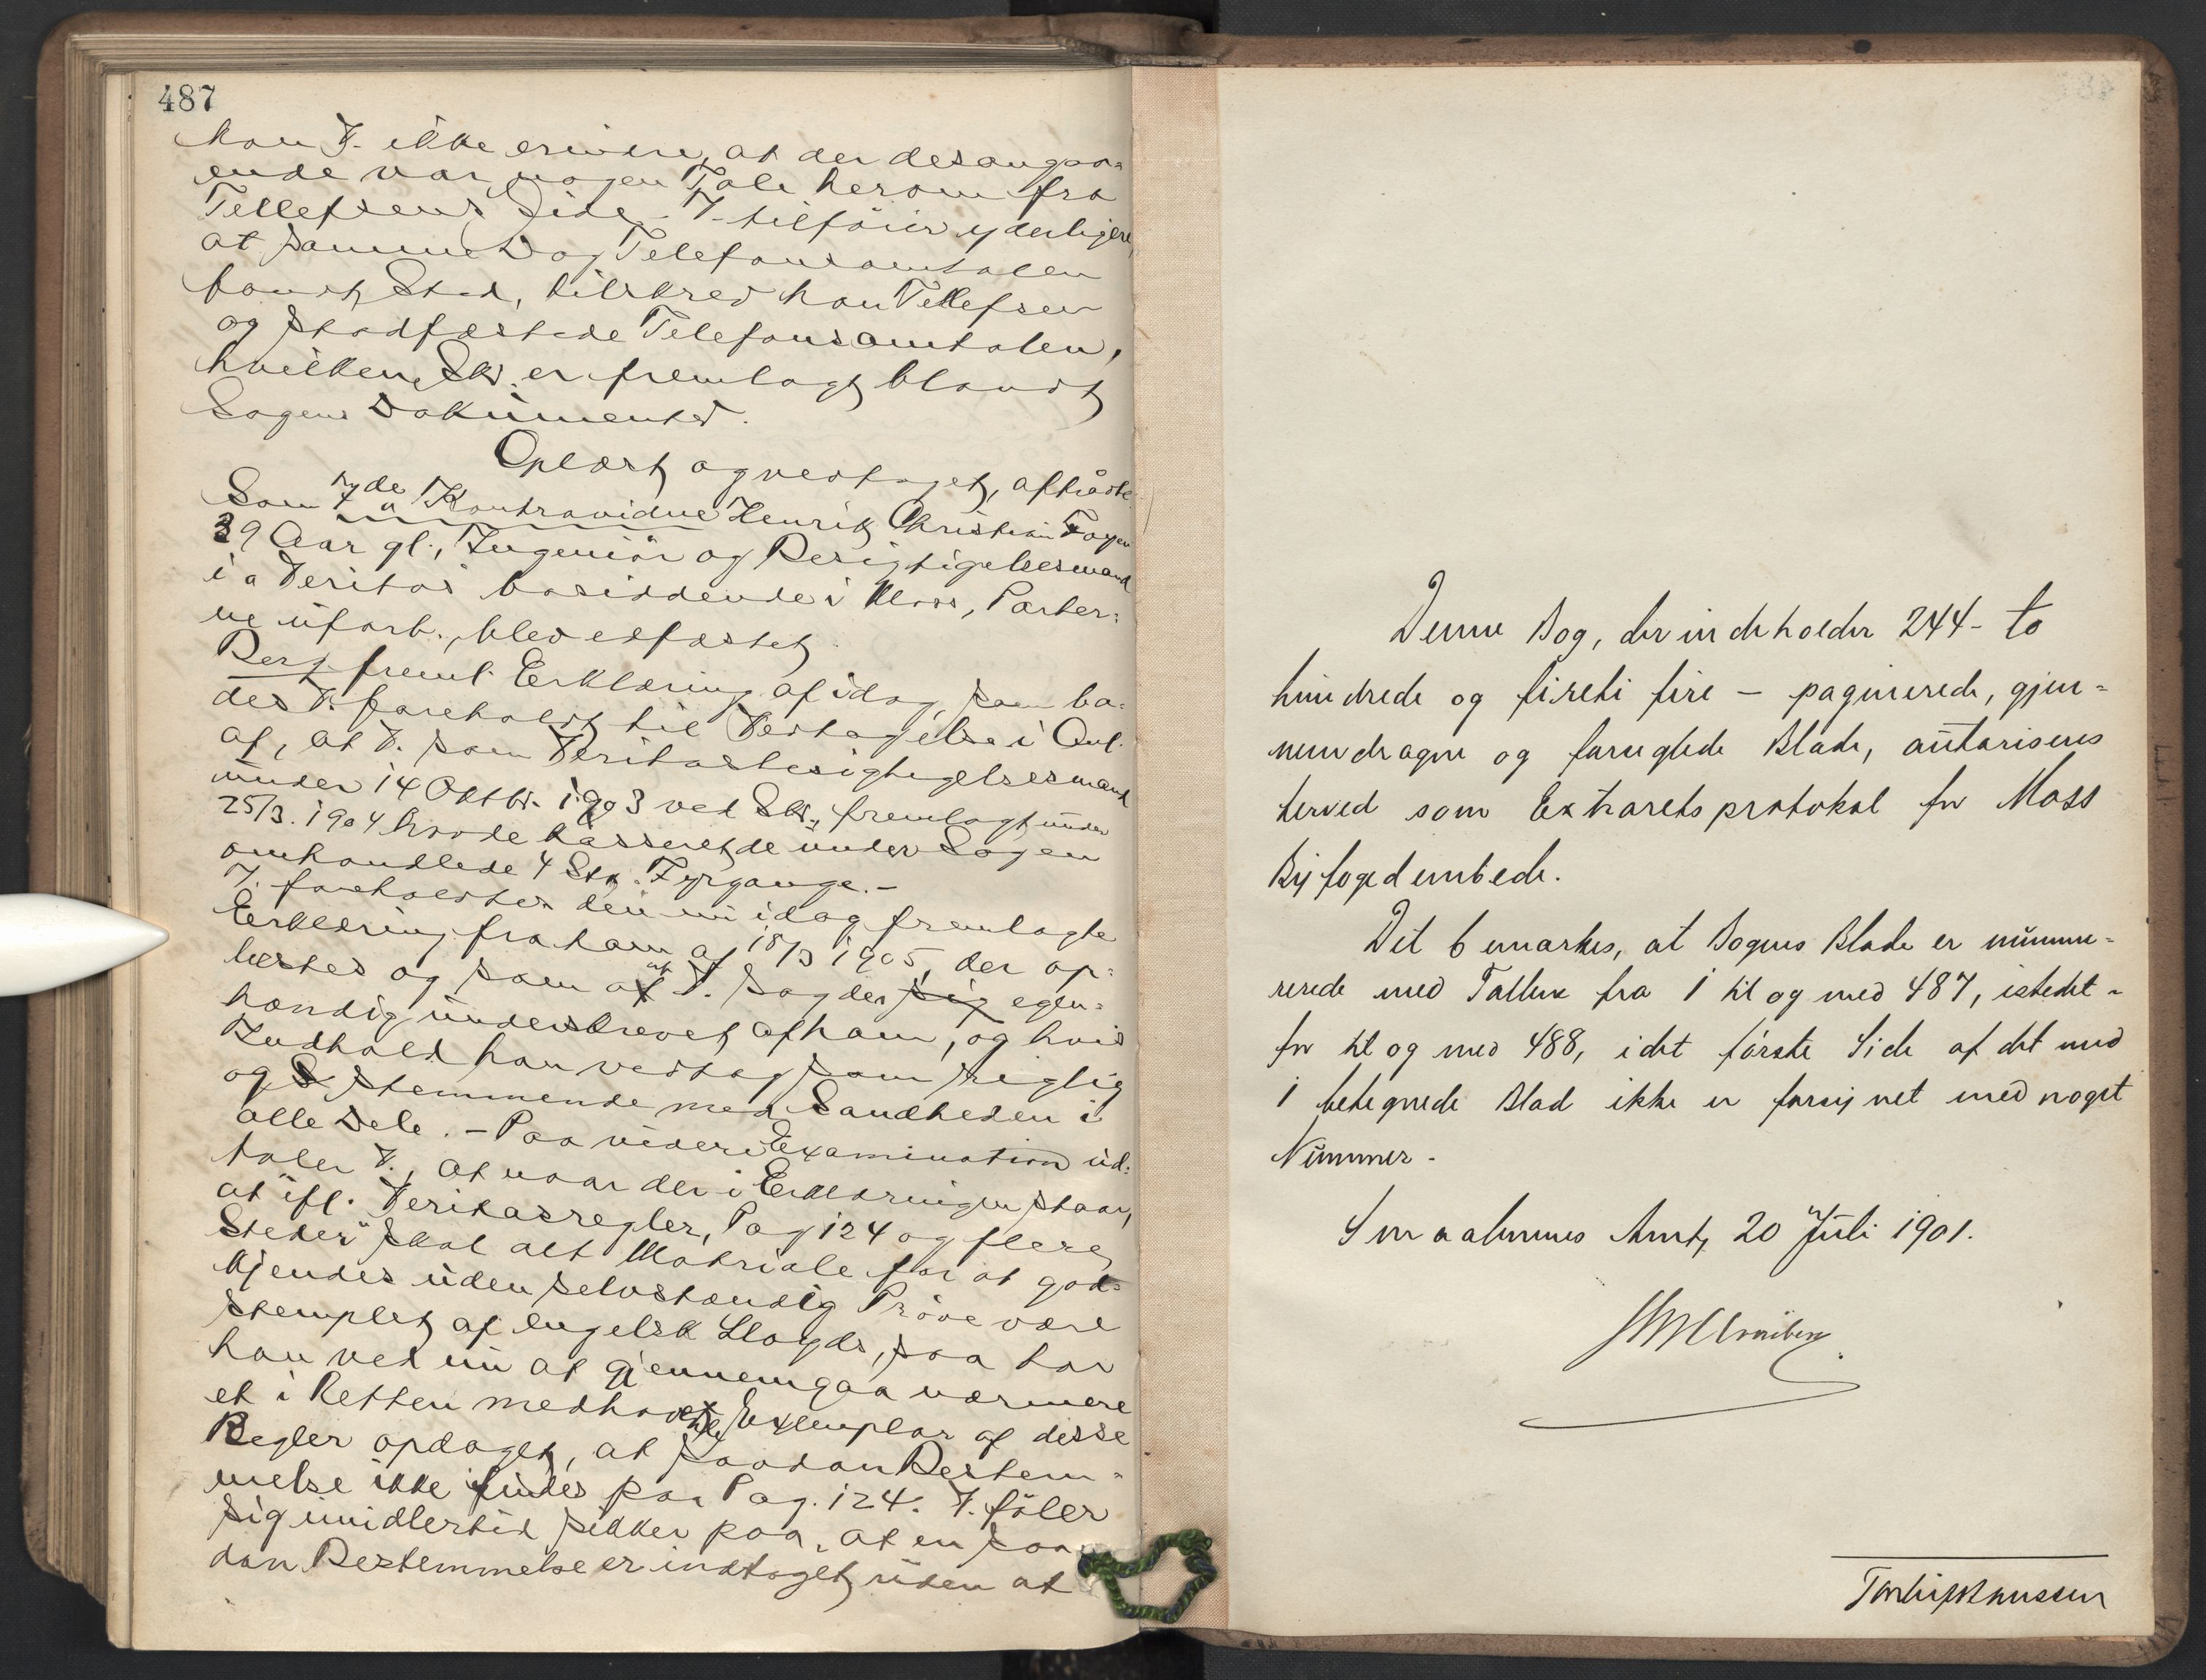 487
kan V. ikke erindre, at der desangaa-
ende var nogen Tale herom fra
Tellefsens Side. - V. tilföier yderligere,
at samme Dag Telefonsamtalen
fandt Sted, tilskrev han Tellefsen
og stadfæstede Telefonsamtalen,
hvilken Skr. er fremlagt blandt
Sagens Dokumenter.
Oplæst og vedtaget, aftraadte.
Som 7de Kontravidne Henrik Christian
39 Aar gl., Ingeniör og Besigtigelsesmand
i Veritas bosiddende i Moss, Parter-
ne ubesl., blev edfæstet.
Ber. freml. Erklæring af idag, som ba-
des V. foreholdt til Vedtagelse i Anl.
af, at V. som Veritasbesigtigelsesmand
under 14 Oktbr. 1903 ved Skr., fremlagt under
25/3. 1904 havde kasseret de under Sagen
omhandlede 4 Stk. Fyrgange. -
V. foreholdtes den nu idag fremlagte
Erklæring fra ham af 18/3 1905, der op-
læstes og som V. sagdes egen-
hændig underskrevet af ham, og hvis
Indhold han vedtog som rigtig
og stemmende med Sandheden i
alle Dele. - Paa videre Examination ud-
taler V., at naar der i Erklæringen staar,
at "ifl. Veritasregler, Pag 124 og flere
Steder" skal alt Matriale for at god-
kjendes uden selvstændig Pröve være
stemplet af engelsk Lloyds, saa har
han ved nu at gjennemgaa nærmere
et i Retten medhavende Exemplar af disse
Regler opdaget, at saadan Bestem-
melse ikke findes paa Pag. 124. V. föler
sig imidlertid sikker paa, at en saa-
dan Bestemmelse er indtaget, uden at
Denne Bog, der indeholder 244 - to
hundrede og firti fire - paginerede, gjen-
nemdragne og forseglede Blade, autoriseres
herved som Extraretsprotokol for Moss
Byfogedembede.
Det bemærkes, at Bogens Blade er numme-
rerede med Tallene fra 1 til og med 487, istedet-
for til og med 488, idet förste Side af det med
1 betegnede Blad ikke er forsynet med noget
Nummer.
Smaalenenes Amt, 20 Juli 1901.